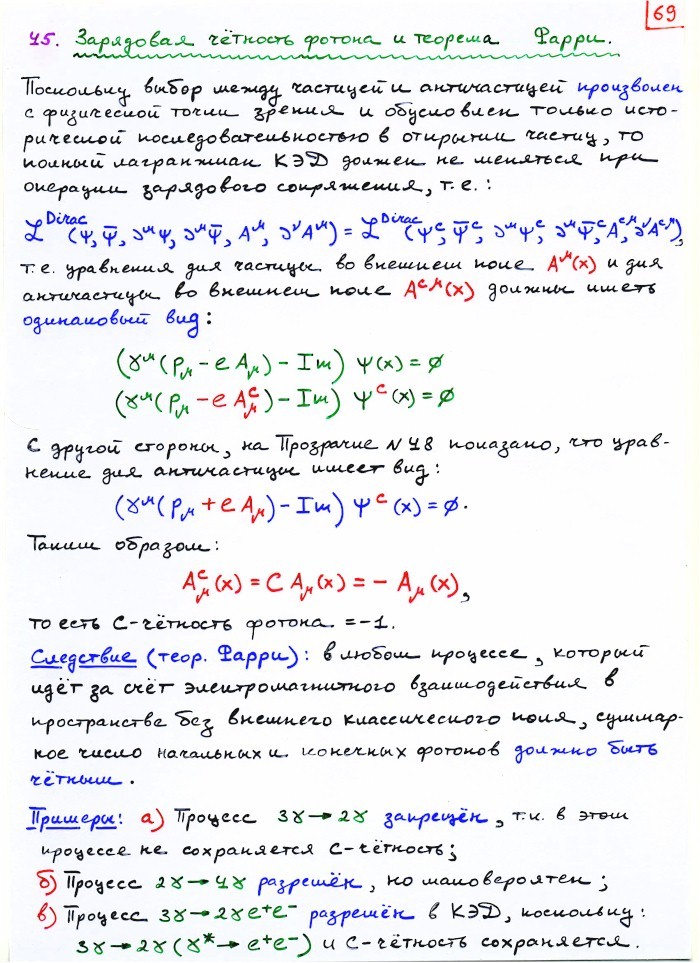 69
45. Зарядовая чётность фотона и теорема Фарри.
Поскольку выбор между частицей и античастицей произволен
с физической точки зрения и обусловлен только исто-
рической последовательностью в открытии частиц, то
полный лагранжиан КЭД должен не меняться при
операции зарядового сопряжения, т.е.:
ℒ^Dirac (ψ, ψ̄, ∂^μ ψ, ∂^μ ψ̄, A^μ, ∂^ν A^μ) = ℒ^Dirac (ψ^c, ψ̄^c, ∂^μ ψ^c, ∂^μ ψ̄^c, A^{cμ}, ∂^ν A^{cμ}),
т.е. уравнения для частицы во внешнем поле A^μ(x) и для
античастицы во внешнем поле A^{cμ}(x) должны иметь
одинаковый вид:
(γ^μ(p_μ − e A_μ) − Im) ψ(x) = ∅
(γ^μ(p_μ − e A^c_μ) − Im) ψ^c(x) = ∅
С другой стороны, на Прозрачке N48 показано, что урав-
нение для античастицы имеет вид:
(γ^μ(p_μ + e A_μ) − Im) ψ^c(x) = ∅.
Таким образом:
A^c_μ(x) = C A_μ(x) = − A_μ(x),
то есть C-чётность фотона = −1.
Следствие (теор. Фарри): в любом процессе, который
идёт за счёт электромагнитного взаимодействия в
пространстве без внешнего классического поля, суммар-
ное число начальных и конечных фотонов должно быть
чётным.
Примеры: а) Процесс 3γ → 2γ запрещён, т.к. в этом
процессе не сохраняется C-чётность;
б) Процесс 2γ → 4γ разрешён, но маловероятен;
в) Процесс 3γ → 2γe⁺e⁻ разрешён в КЭД, поскольку:
3γ → 2γ(γ* → e⁺e⁻) и C-чётность сохраняется.